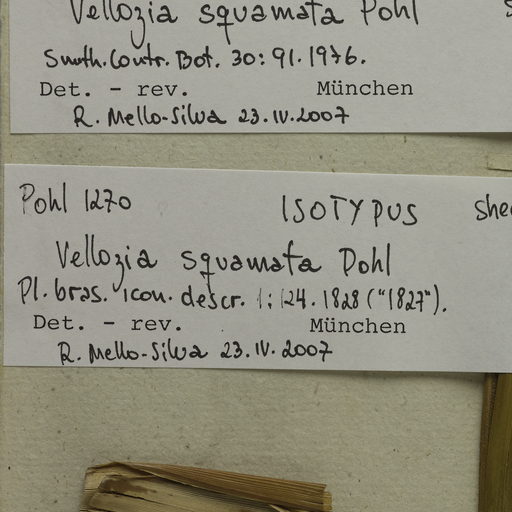 Vellozia squamata Pohl
Smith. Contr. Bot. 30: 91. 1976.
Det. - rev. München
R. Mello-Silva 23.IV.2007
Pohl 1270 ISOTYPUS
Vellozia squamata Pohl
Pl. bras. icon. descr. 1: 124. 1828 ("1827").
Det. - rev. München
R. Mello-Silva 23.IV.2007